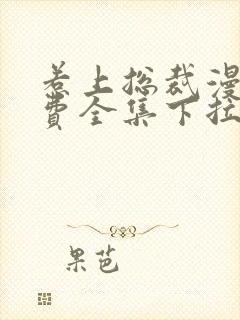 惹上总裁漫
费全集下拉
果芭